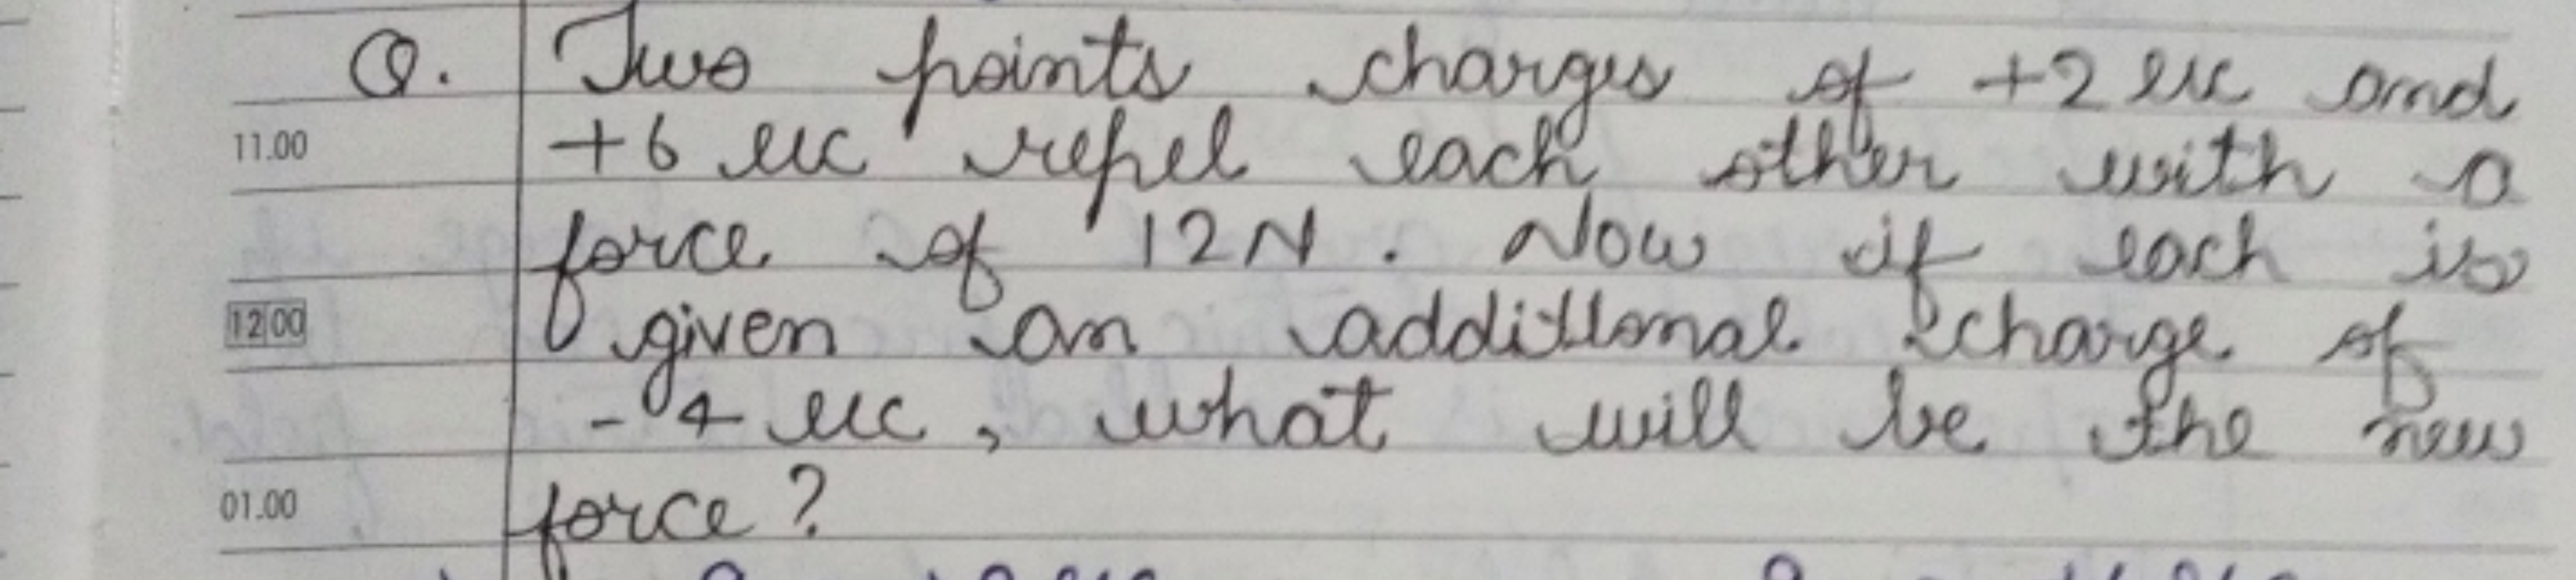 Q. Two points charges of +2 uc and
11.00 +6 uc repel each other with a
force of 12N. Now if each is
12 00 given an additional charge of
-4 uc, what will be the new
01.00 force?